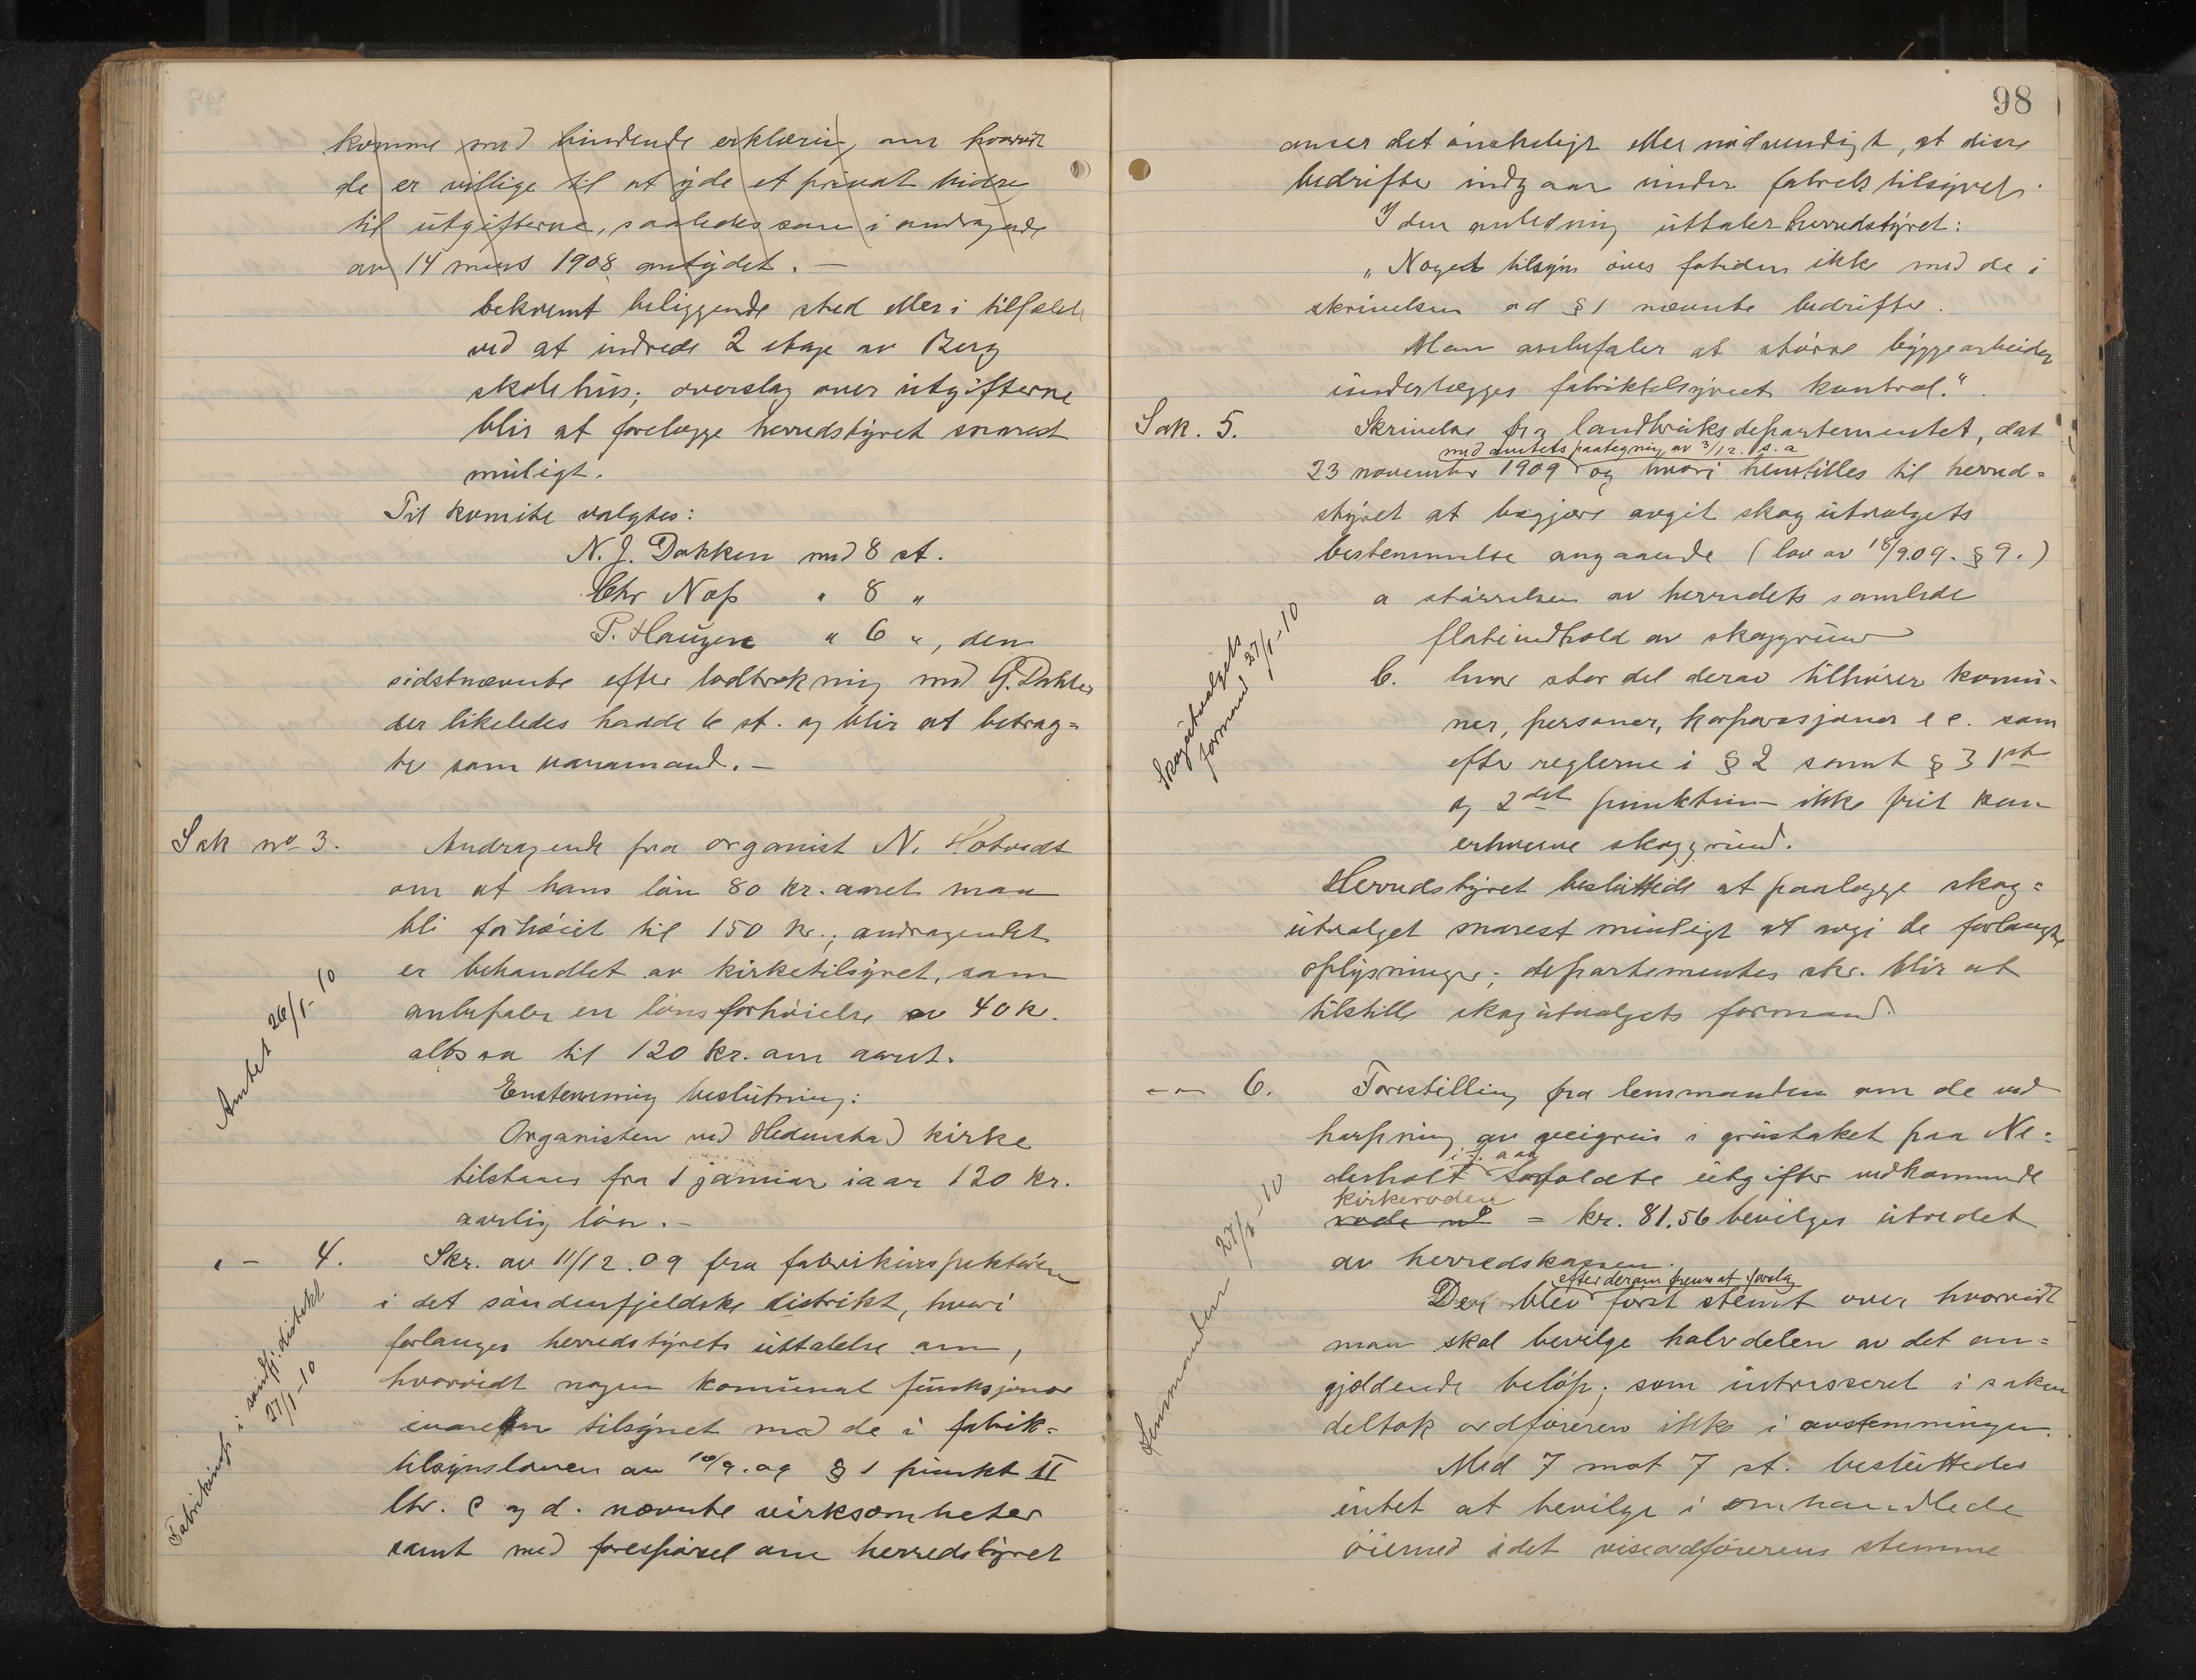 komme med bindende erklæring om hvorvidt
de er villige til at yde et privat bidrag
til utgifterne, saaledes som i andragende
av 14 mars 1908 antydet. —
bekvemt beliggende sted eller i tilfælde
ved at indrede 2 etage av Berg
skolehus; overslag over utgifterne
blir at forelægge herredstyret snarest
muligt.
Til komite valgtes:
N. J. Dakken med 8 st.
Chr Næss " 8 "
P. Haugen " 6 ", den
sidstnævnte efter lodtrækning med G.
der likeledes hadde 6 st. og blir at betrag=
te som varamand. —
Sak no 3. Andragende fra organist N. Hotvedt
om at hans løn 80 kr. aaret maa
bli forhøiet til 150 kr.; andragendet
er behandlet av kirketilsynet, som
anbefaler en lønsforhøielse av 40 kr.
altsaa til 120 kr. om aaret.
Amtet 26/1-10
Enstemmig beslutning:
Organisten ved Hedenstad kirke
tilstaaes fra 1 januar iaar 120 kr.
aarlig løn. —
" — 4. Skr. av 11/12.09 fra fabrikinspektøren
i det søndenfjeldske distrikt, hvori
forlanges herredstyrets uttalelse om,
hvorvidt nogen komunal funksjonær
ivaretar tilsynet med de i fabrik=
tilsynsloven av 10/9.09 § 1 punkt II
ltr. c og d. nævnte virksomheter
samt med forespørsel om herredstyret
Fabrikinsp i søndfj. distrikt
27/1-10
98
anser det ønskeligt eller nødvendigt, at disse
bedrifter indgaar under fabrikstilsynet.
I den anledning uttaler herredstyret:
"Noget tilsyn øves fortiden ikke med de i
skrivelsen ad § 1 nævnte bedrifter.
Man anbefaler at større byggearbeider
underlægges fabriktilsynets kontrol."
Sak. 5. Skrivelse fra landbruksdepartementet, dat
med amtets paategning av 3/12. s. a
23 november 1909 og hvori henstilles til herred=
styret at begjære avgit skogutvalgets
bestemmelse angaaende (lov av 18/9.09. § 9.)
a størrelsen av herredets samlede
flateindhold av skoggrund
b. hvor stor del derav tilhører komu-
ner, personer, korporasjoner e c. som
efter reglerne i § 2 samt § 3 1ste
og 2det punktum ikke frit kan
erhverve skoggrund.
Skogutvalgets
formand 27/1-10
Herredstyret besluttede at paalægge skog=
utvalget snarest muligt at avgi de forlangte
oplysninger; departementes skr. blir at
tilstille skogutvalgets formand.
— " — 6. Forestilling fra lensmanden om de ved
harpning av veigrus i grustaket paa Ne=
i f. aar
derholt forfaldte utgifter vedkommende
kirkeroden
rode no = kr. 81.56 bevilges utredet
av herredskassen.
efter derom fremsat forslag
Der blev først stemt over hvorvidt
man skal bevilge halvdelen av det om=
gjældende beløp; som intresseret i saken
deltok ordføreren ikke i avstemningen.
Med 7 mot 7 st. besluttedes
intet at bevilge i omhandlede
øiemed idet viseordførerens stemme
Lensmanden 27/1-10